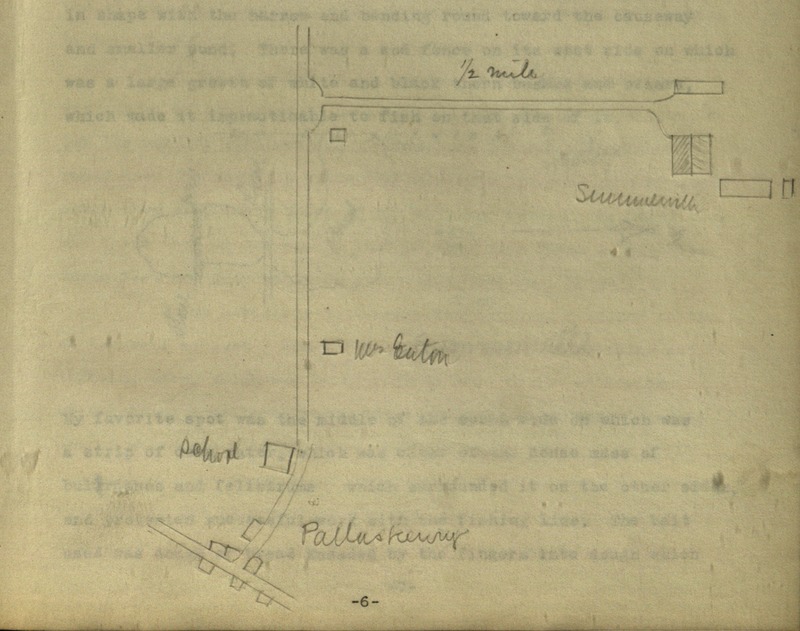 in shape with the barrow and bending round toward the causeway
and smaller pond. There was a sod fence on its west side on which
was a large growth of white and black thorn bushes and
which made it impracticable to fish on that side of it.
1/2 mile
Summerville
Mrs Eaton
My favorite spot was the middle of the which was
School
a strip of which was dense mass of
bulrushes and which surrounded it on the other sides,
and prevented with the fishing line. The bait
Pallaskenry
used was kneaded by the fingers into dough which
-6-